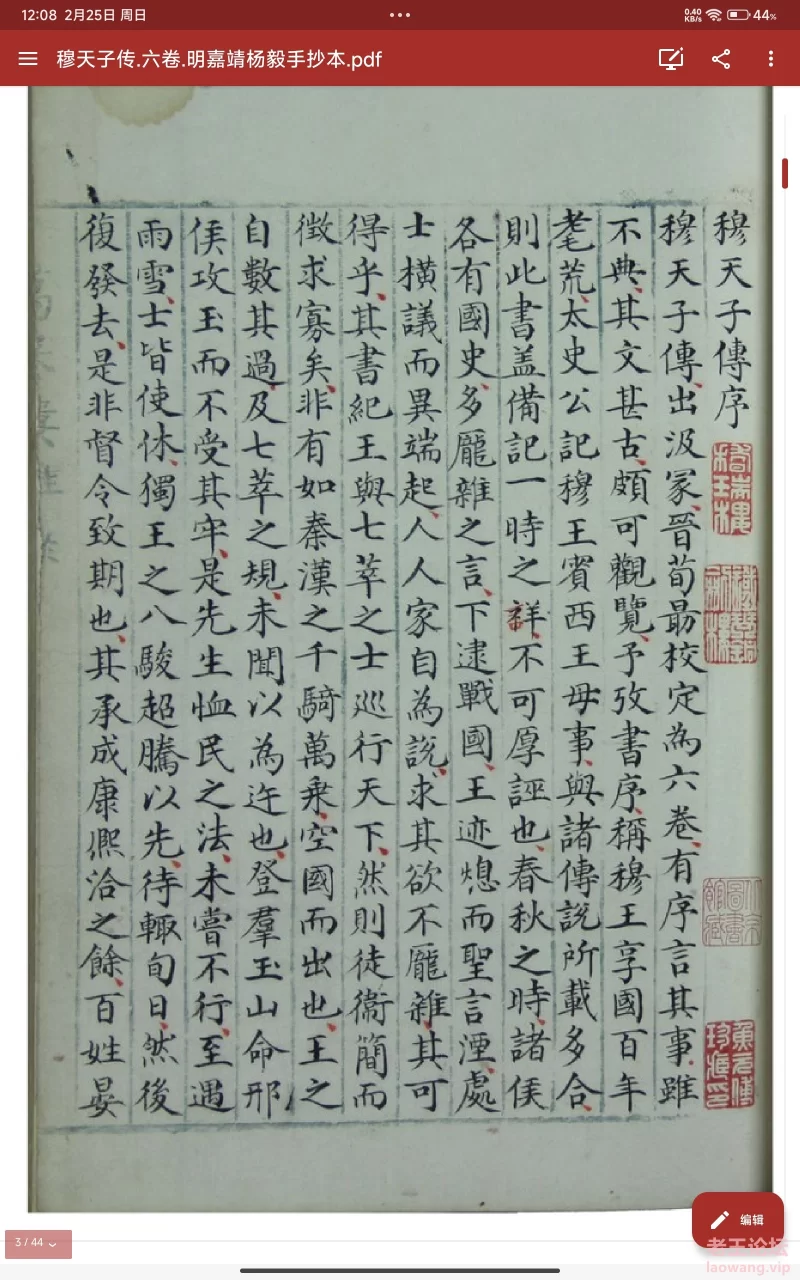 12:08 2月25日 周日
0.40 KB/s
44%
穆天子传.六卷.明嘉靖杨毅手抄本.pdf
穆天子傳序
穆天子傳、出汲冢、晉荀勗校定為六卷、有序言其事、雖
不典、其文甚古、頗可觀覽、予攷書序、稱穆王享國百年
耄荒、太史公記穆王賓西王母事、與諸傳說所載多合、
則此書盖備記一時之詳、不可厚誣也、春秋之時、諸侯
各有國史、多龎雜之言、下逮戰國、王迹熄而聖言湮、處
士橫議而異端起、人人家自為說、求其欲不龎雜、其可
得乎、其書紀王與七萃之士巡行天下、然則徒衛簡而
徵求寡矣、非有如秦漢之千騎萬乗、空國而出也、王之
自數其過、及七萃之規、未聞以為迕也、登羣玉山命邢
侯攻玉而不受其牢、是先生恤民之法、未嘗不行、至遇
雨雪、士皆使休、獨王之八駿超騰以先、待輙旬日、然後
復發去、是非督令致期也、其承成康熈洽之餘、百姓晏
3 / 44
编辑
老王论坛
laowang.vip